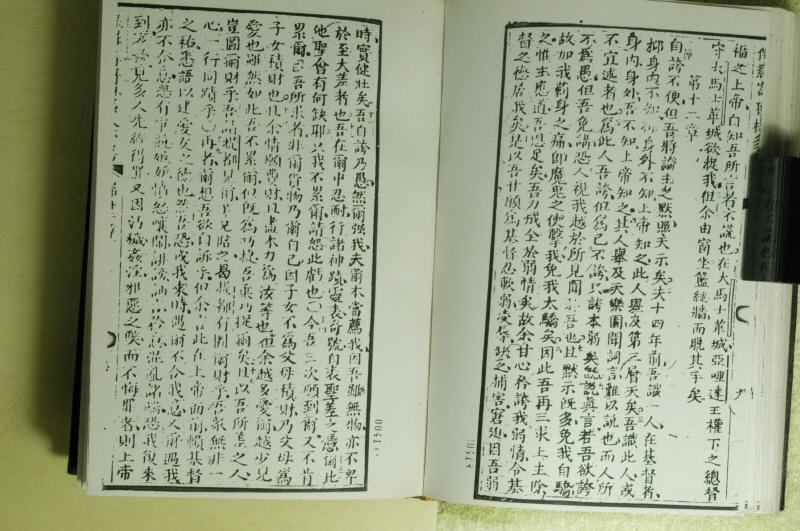 福之上帝自知吾所言者不謊也在大馬士革城亞哩達王權下之總督
守大馬士革城欲捉我但余由窗坐籃縋牆而脫其手矣
第十二章
自誇不便但吾將論主之默照天示矣夫十四年前吾識一人在基督者
抑身內不知抑身外不知上帝知之此人舉及第三層天矣吾識此人或
身內身外吾不知上帝知之其人舉及天樂園聞詞言難以說也而人所
不宜述者也為此人吾誇但為己不誇只誇本弱矣說真言者吾欲誇
不為愚但吾免謁恐人視我越於所見聞吾也且默示既多免我自驕
故加我靳身之痛即魔鬼之使擊我免我太驕矣因此吾再三求上主除
之惟主應道吾恩足矣吾力成全於弱情矣故余甘心矜誇我弱情令基
督之德居我矣是以吾甘煩為基督忍軟弱凌辱缺乏捕害窘迫因吾弱
時實健壯矣吾自誇乃愚然爾強我夫爾本當薦我因吾雖無物亦不卑
於至大差者也吾在爾中忍耐行諸神蹟靈表奇號自表聖差之憑爾比
他聖會有何缺耶只我不累爾請恕此虧也今吾三次願到爾又不肯
累爾吾所求者非爾貨物乃爾自己因子女不為父母積財乃父母為
子女積財也且余情願費財且盡本力為汝等也但余越多愛爾越少見
愛也雖然如此吾不累爾但既為巧猾吾乘巧捉爾矣且以吾所差之人
豈圖爾財乎吾請提都見爾 提都有圖爾財乎吾眾無非一
心一行同蹟乎再者爾想吾欲自訴乎但余言此在上帝面前賴基督
之祐悉語以建愛友之德也然吾恐或我來時遇爾不合我意人爾遇我
亦不合意恐有 嫉妒情怨嚷鬧誹謗 恐我復來
到 見多人先經得罪又因污穢姦淫邪惡之 而不悔罪者則上帝
00516